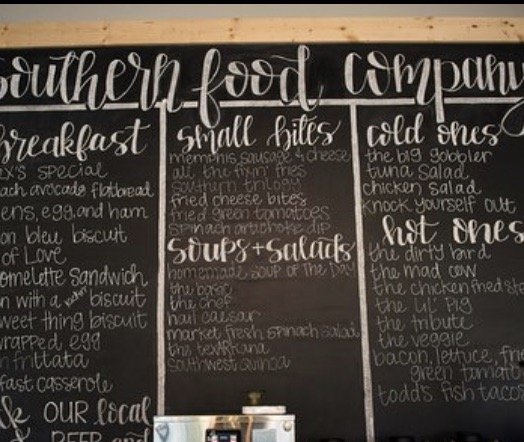 Southern food company
breakfast
EX'S special
ach avocado flatbread
ens, egg, and ham
on bleu biscuit
of Love
omelette Sandwich
n with a biscuit
weet thing biscuit
wrapped egg
frittata
fast casserole
OUR local
BEER and
small bites
memphis sausage & cheese
all the fixin' fries
southurn trilogy
fried cheese bites
fried green tomatoes
spinach artichoke dip
soups + salads
homemade soup of the Day
the basic
the chef
hail caesar
market fresh spinach salad
the tuna
southwest quinoa
cold ones
the big gobbler
tuna salad
chicken salad
knock yourself out
hot ones
the dirty bird
the mad cow
the chicken fried ste
the lil' pig
the tribute
the veggie
bacon, lettuce, fri
green tomato
todd's fish taco